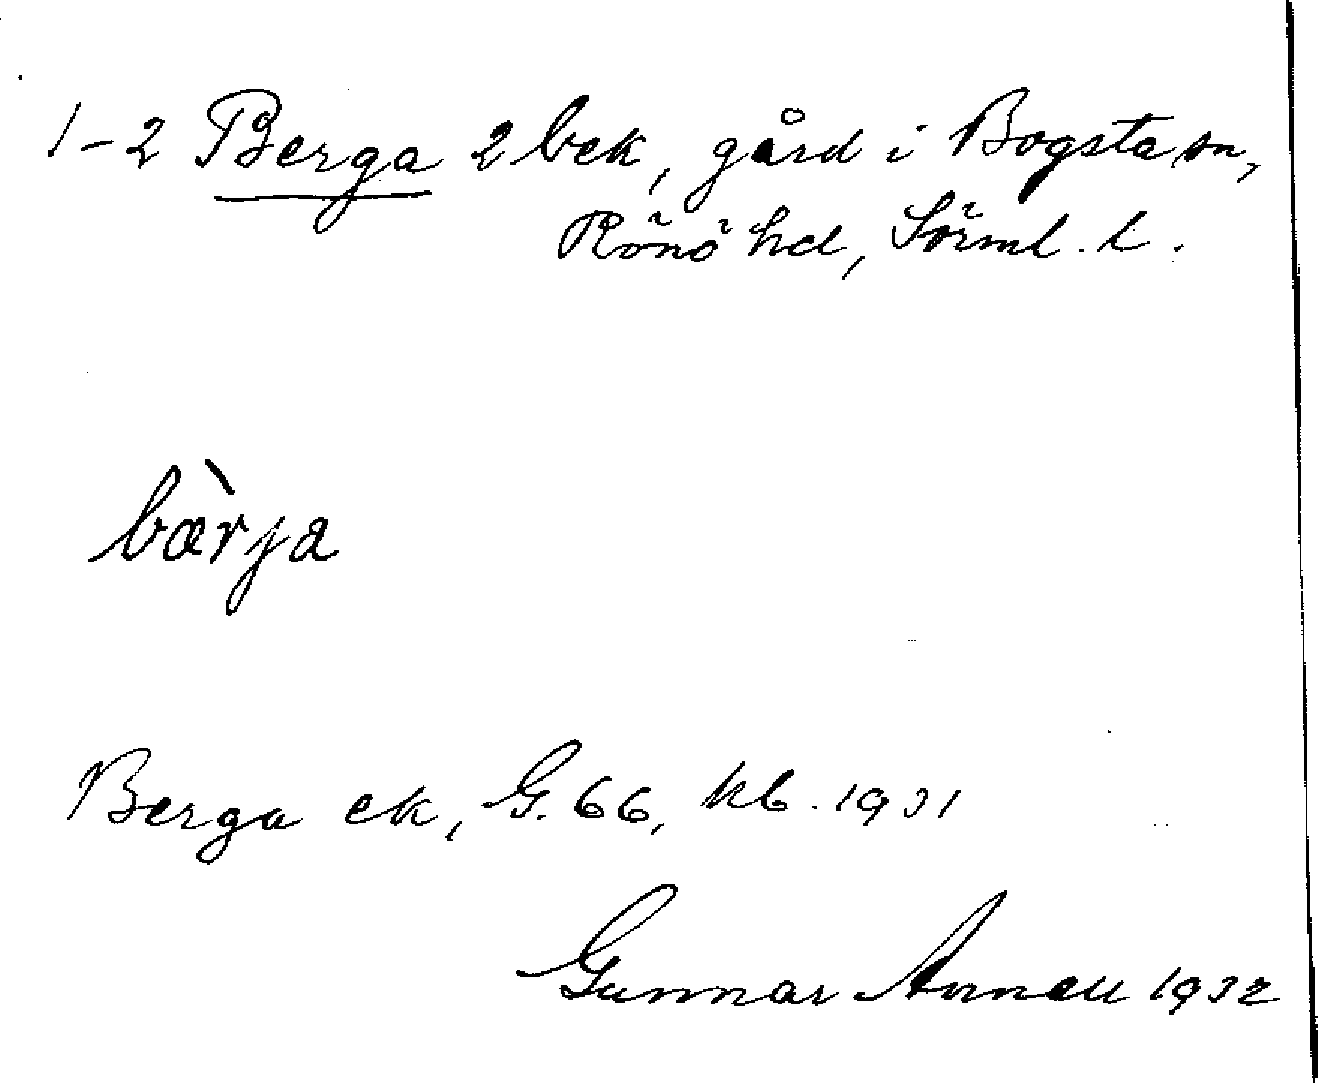 1-2 Berga 2 bek, gård i Bogsta sn,
Rönö hd, Sörml. l.
bæ̀rja
Berga ek, G. 66, kb. 1931
Gunnar Annell 1932